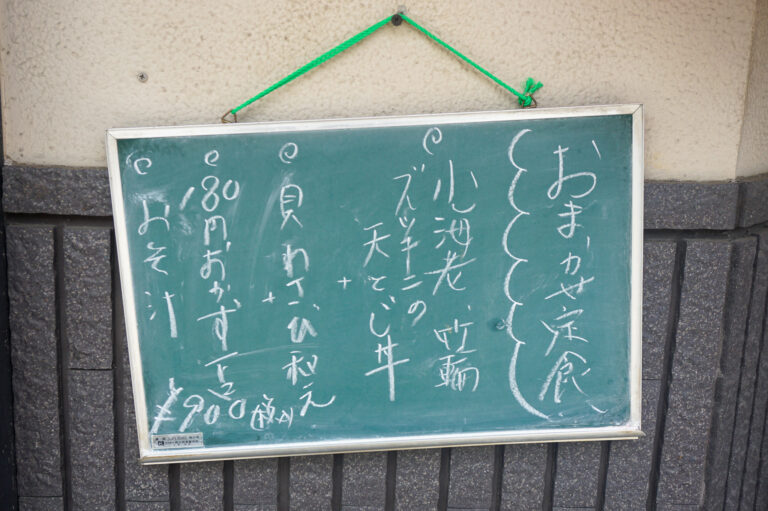 おまかせ定食
小海老、竹輪
ズッキーニの
天とじ丼
+
貝わさび和え
+
180円おかず一品
みそ汁
¥900(税込)